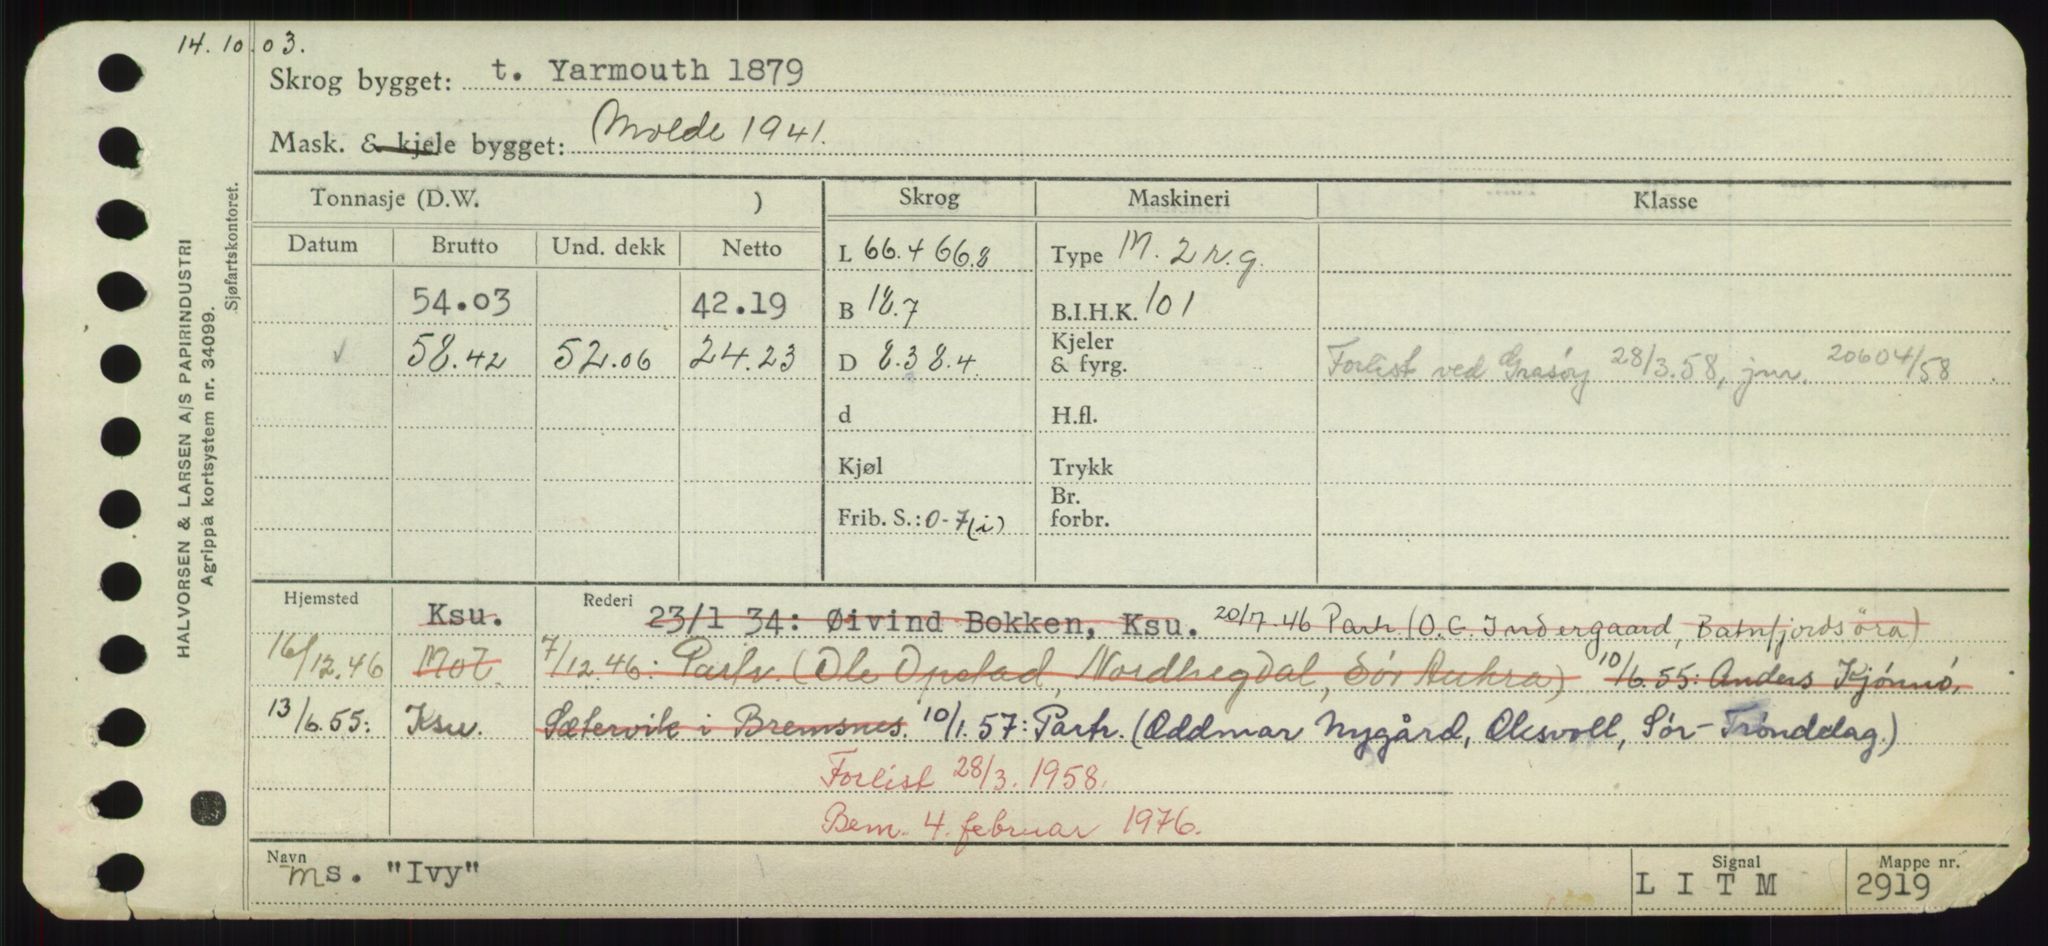 14.10.03.
Skrog bygget: t. Yarmouth 1879
Mask. & kjele bygget: Molde 1941.
HALVORSEN & LARSEN A/S PAPIRINDUSTRI
Agrippa kortsystem nr. 34099.
Sjøfartskontoret.
Tonnasje (D.W. ) Skrog Maskineri Klasse
Datum Brutto Und. dekk Netto L 66.4 66.8 Type M. 2 r.g.
54.03 42.19 B 18.7 B.I.H.K. 101
✓ 58.42 52.06 24.23 D 8.3 8.4 Kjeler & fyrg. Forlist ved Grasøy 28/3.58, jnr. 20604/58
d H.fl.
Kjøl Trykk
Frib. S.: 0-7(i) Br. forbr.
Hjemsted Ksu. Rederi 23/1 34: Øivind Bokken, Ksu. 20/7.46 Partr. (O.C. Indergaard, Batnfjordsöra)
16/12.46 Mol. 7/12.46: Partr. (Ole Opstad, Nordhegdal, Sör Aukra) 10/6.55: Anders Kjönnö,
13/6.55: Ksu. Sætervik i Bremsnes. 10/1.57: Partr. (Oddmar Nygård, Olesvoll, Sør-Trønddag.)
Forlist 28/3.1958.
Bem. 4. februar 1976.
Navn ms. "Ivy" Signal LITM Mappe nr. 2919